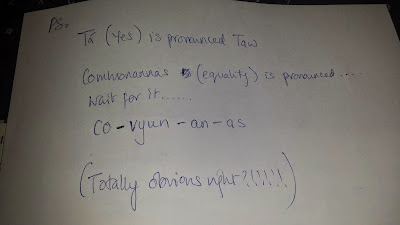 PS.
Tá (Yes) is pronounced Taw
Comhionannas (equality) is pronounced....
Wait for it.......
CO-vyun-an-as
(Totally obvious right?!!!!!!)